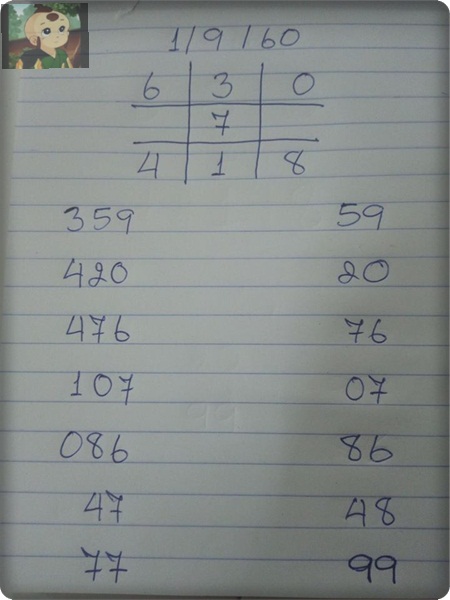 1/9/60
6 3 0
7
4 1 8
359 59
420 20
476 76
107 07
086 86
47 48
77 99